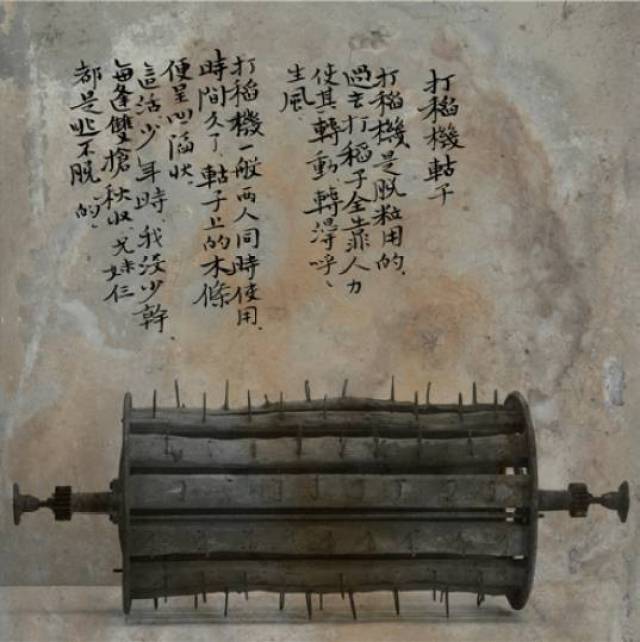 打稻機軲子
打稻機是脫粒用的.
過去打稻子全靠人力
使其轉動轉得呼、
生風.
打稻機一般两人同時使用.
時間久了、軲子上的木條
便呈凹陷状.
這活.少年時.我没少幹.
每逢雙搶秋收.兄妹仨
都是逃不脫的.